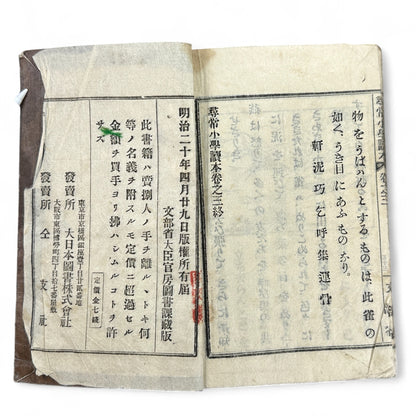 物をうばはんとするものは、此雀の
如く、うき目にあふものなり。
軒 況 巧 乞 呼 集 運 骨
尋常小學讀本卷之三終
明治二十年四月廿九日版權所有屆
文部省大臣官房圖書課藏版
此書籍ハ賣捌人ノ手ヲ離ルヽトキ何
等ノ名義ヲ附スルモ定價ニ超過セル
金額ヲ買手ヨリ拂ハシムルコトヲ許
サズ
定價金七錢
發賣所
大日本圖書株式會社
發賣所 仝 支社